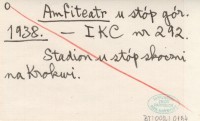 o
Amfiteatr u stóp gór.
1938. — IKC nr 292.
Stadion u stóp skoczni
na Krokwi.